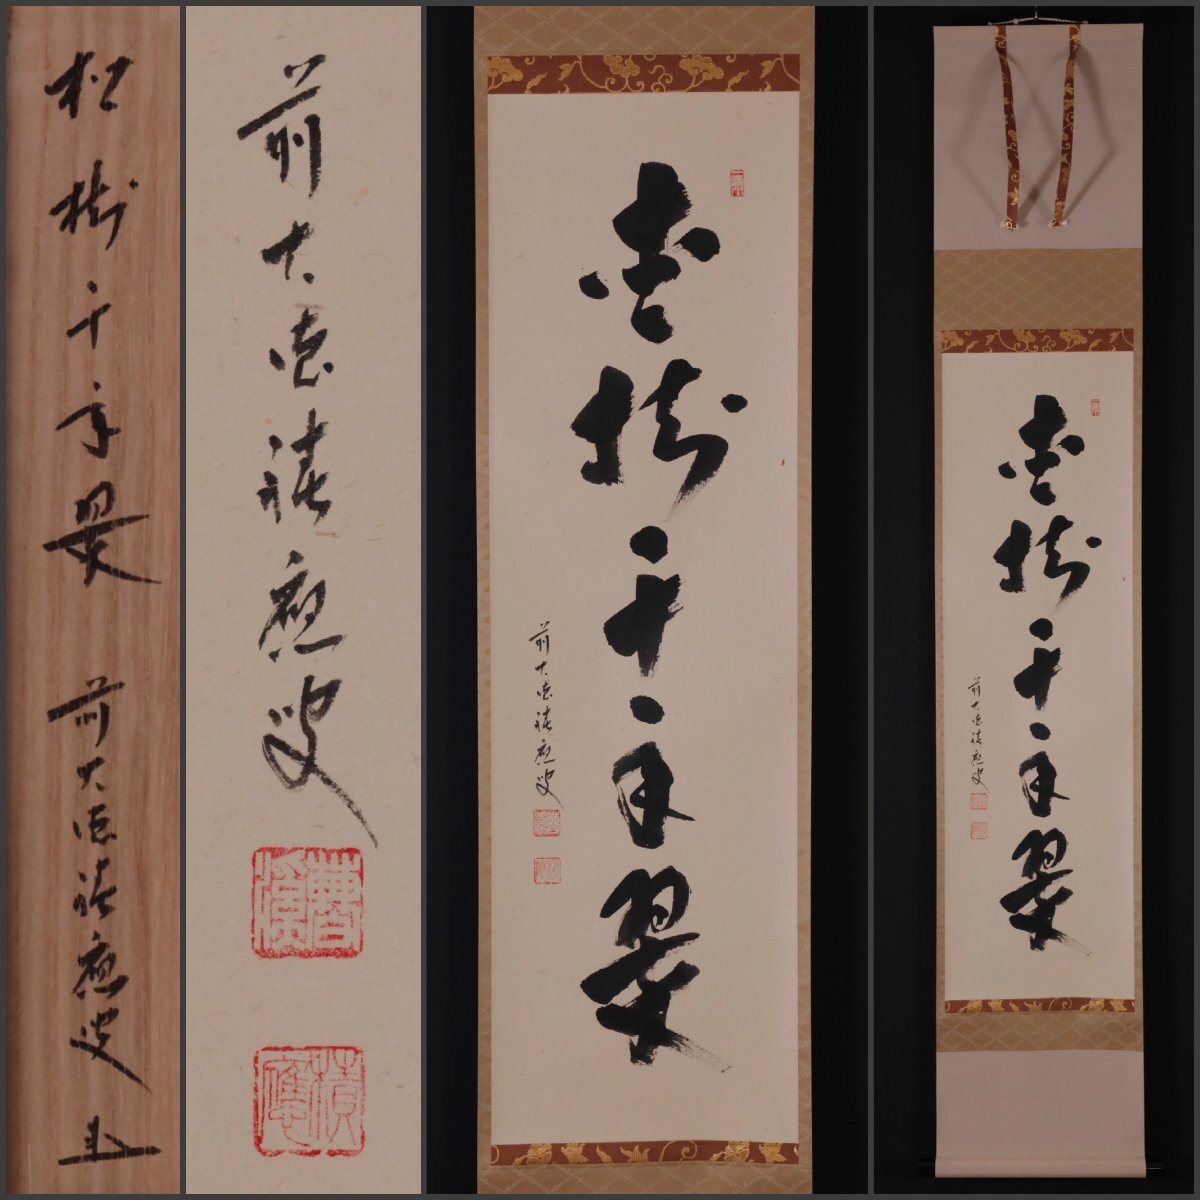 松樹千年翠 前大徳積應叟
前大徳積應叟
積應
松樹千年翠
前大徳積應叟
松樹千年翠
前大徳積應叟